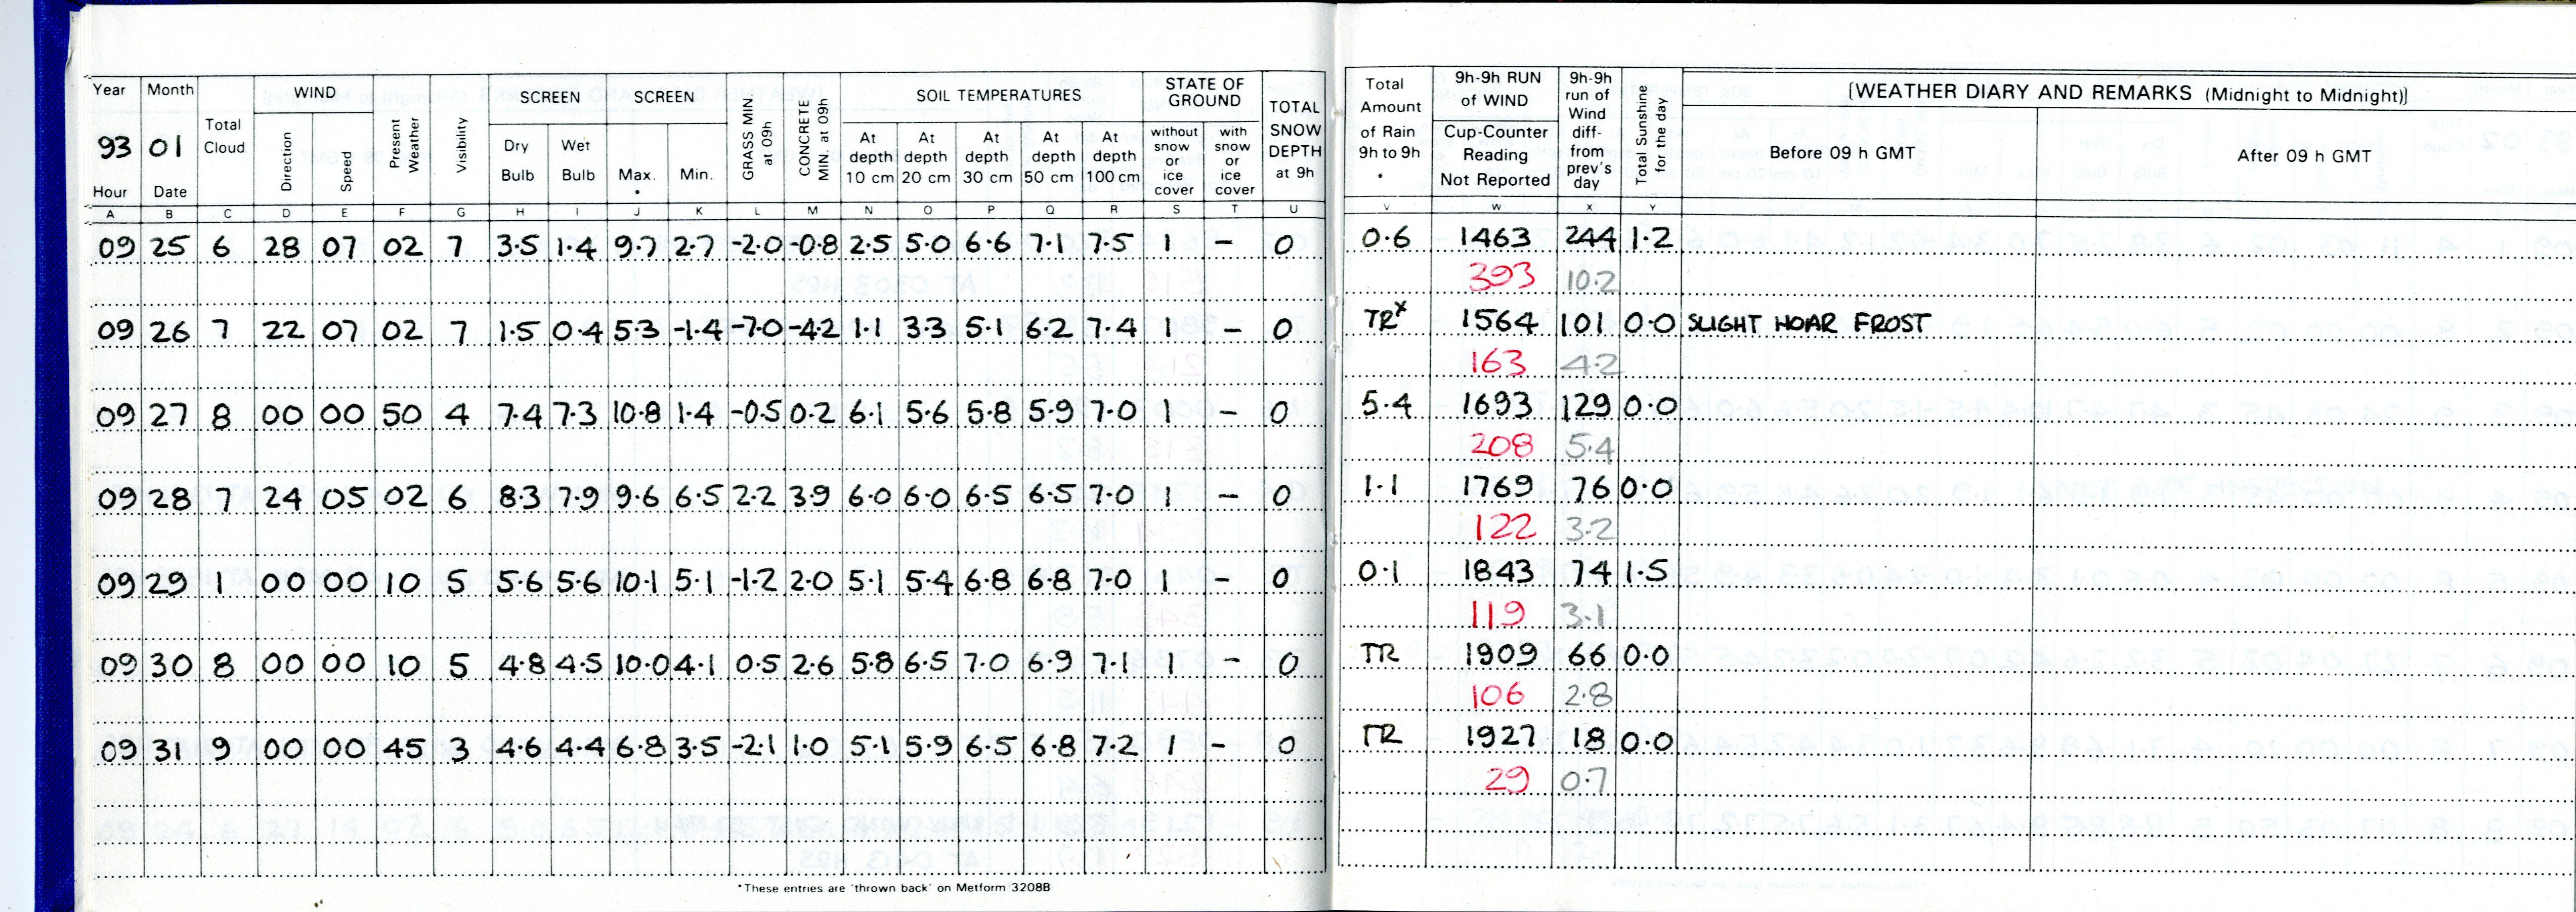 Year Month WIND SCREEN SCREEN SOIL TEMPERATURES STATE OF GROUND
93 01 Total Cloud Direction Speed Present Weather Visibility Dry Bulb Wet Bulb Max. * Min. GRASS MIN. at 09h CONCRETE MIN. at 09h At depth 10 cm At depth 20 cm At depth 30 cm At depth 50 cm At depth 100 cm without snow or ice cover with snow or ice cover TOTAL SNOW DEPTH at 9h
Hour Date
Total Amount of Rain 9h to 9h * 9h-9h RUN of WIND Cup-Counter Reading Not Reported 9h-9h run of Wind diff- from prev's day Total Sunshine for the day [WEATHER DIARY AND REMARKS (Midnight to Midnight)]
Before 09 h GMT After 09 h GMT
A B C D E F G H I J K L M N O P Q R S T U V W X Y
09 25 6 28 07 02 7 3·5 1·4 9·7 2·7 -2·0 -0·8 2·5 5·0 6·6 7·1 7·5 1 – 0 0·6 1463 244 1·2
393 10·2
09 26 7 22 07 02 7 1·5 0·4 5·3 -1·4 -7·0 -4·2 1·1 3·3 5·1 6·2 7·4 1 – 0 TRx 1564 101 0·0 SLIGHT HOAR FROST
163 4·2
09 27 8 00 00 50 4 7·4 7·3 10·8 1·4 -0·5 0·2 6·1 5·6 5·8 5·9 7·0 1 – 0 5·4 1693 129 0·0
208 5·4
09 28 7 24 05 02 6 8·3 7·9 9·6 6·5 2·2 3·9 6·0 6·0 6·5 6·5 7·0 1 – 0 1·1 1769 76 0·0
122 3·2
09 29 1 00 00 10 5 5·6 5·6 10·1 5·1 -1·2 2·0 5·1 5·4 6·8 6·8 7·0 1 – 0 0·1 1843 74 1·5
119 3·1
09 30 8 00 00 10 5 4·8 4·5 10·0 4·1 0·5 2·6 5·8 6·5 7·0 6·9 7·1 1 – 0 TR 1909 66 0·0
106 2·8
09 31 9 00 00 45 3 4·6 4·4 6·8 3·5 -2·1 1·0 5·1 5·9 6·5 6·8 7·2 1 – 0 TR 1927 18 0·0
29 0·7
*These entries are 'thrown back' on Metform 3208B